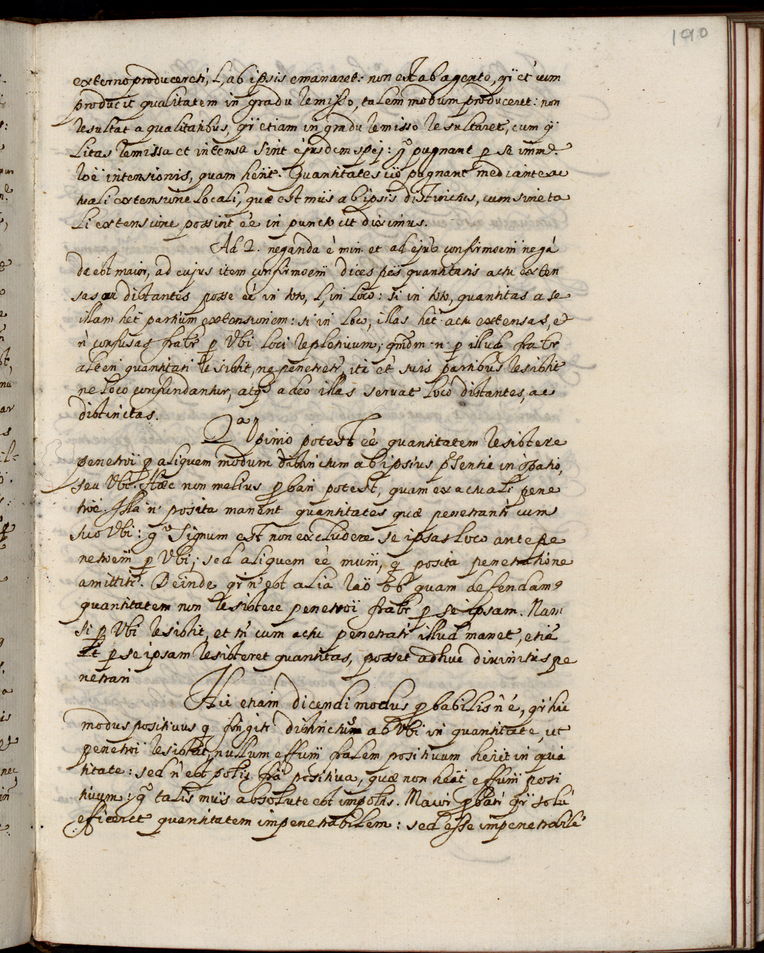 190
externo produceret, l, ab ipsis emanaret: non est ab agente, qr̃ et cum
producit qualitatem in gradu remisso, talem modum produceret: non
resultat a qualitatibus, qr̃ etiam in gradu remisso resultaret, cum q̃
litas remissa et intensa sint ejusdem spej: pugnant p se
intensionis, quam herit. Quantitates pugnant mediante a
ctuali extensione locali, quæ est ab ipsis distinctus, cum sine ta
li extensione possint ẽe in puncto ut diximus.
Ad 2. neganda ẽ min et ad ejus confirmõem negã
da est maior, ad cujus item confirmõem dices quantitatis actu exten
sas ac distantes posse ẽe in toto, l, in loco: si in toto, quantitas a se
illam het partium extensionem: si in loco, illas het actu extensas, e
ñ confusas p Vbi loci repletiuum; ñ p illud
alteri quantitati resistit, ne penetretr, ita et suis partibus resistit
ne loco confundantur, atq adeo illas servat loco distantes, ac
distinctas.
2ª Opinio potest ẽe quantitatem resistere
penetrõi p aliquem modum distinctum ab ipsius pr̃sentia in spatio,
seu Vbi. Hæc non melius p bari potest, quam ex actuali pene
trõe. Illa ñ posita manent quantitates quæ penetrantr cum
suo Vbi: signum est non excludere se ipsas loco ante pe
netrõem p Vbi; sed aliquem ẽe mum, q posita penetratione
amittitr. Deinde qr̃ ñ est alia rãõ quam defendamꝰ
quantitatem non resistere penetrõi p se ipsam. Nam
si p Vbi resistit, et tñ cum actu penetratr illud manet, etiã
si p se ipsam resisteret quantitas, posset adhuc divinitus pe
netrari
Hic etiam dicendi modus p babilis ñ ẽ, qr̃ hic
modus positiuus q fingitr distinctus ab Vbi in quantitate, ut
penetrõi resistat, nullum effum positiuum herit in quã
titate: sed ñ est positiua, quæ non heat effum posi
tiuum: talis absolute est impolis. Maior p batr qr̃ solũ
efficeret quantitatem impenetrabilem: sed esse impenetrabilẽ